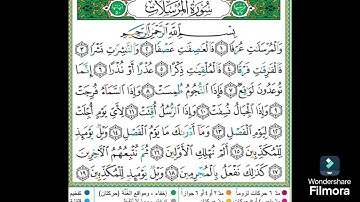 سُورَةُ المُرْسَلَات
بِسْمِ اللَّهِ الرَّحْمَٰنِ الرَّحِيمِ
وَالْمُرْسَلَاتِ عُرْفًا ١ فَالْعَاصِفَاتِ عَصْفًا ٢ وَالنَّاشِرَاتِ نَشْرًا ٣
فَالْفَارِقَاتِ فَرْقًا ٤ فَالْمُلْقِيَاتِ ذِكْرًا ٥ عُذْرًا أَوْ نُذْرًا ٦ إِنَّمَا
تُوعَدُونَ لَوَاقِعٌ ٧ فَإِذَا النُّجُومُ طُمِسَتْ ٨ وَإِذَا السَّمَاءُ فُرِجَتْ
٩ وَإِذَا الْجِبَالُ نُسِفَتْ ١٠ وَإِذَا الرُّسُلُ أُقِّتَتْ ١١ لِأَيِّ يَوْمٍ أُجِّلَتْ
١٢ لِيَوْمِ الْفَصْلِ ١٣ وَمَا أَدْرَاكَ مَا يَوْمُ الْفَصْلِ ١٤ وَيْلٌ يَوْمَئِذٍ
لِّلْمُكَذِّبِينَ ١٥ أَلَمْ نُهْلِكِ الْأَوَّلِينَ ١٦ ثُمَّ نُتْبِعُهُمُ الْآخِرِينَ
١٧ كَذَٰلِكَ نَفْعَلُ بِالْمُجْرِمِينَ ١٨ وَيْلٌ يَوْمَئِذٍ لِّلْمُكَذِّبِينَ ١٩
Wondershare
Filmora